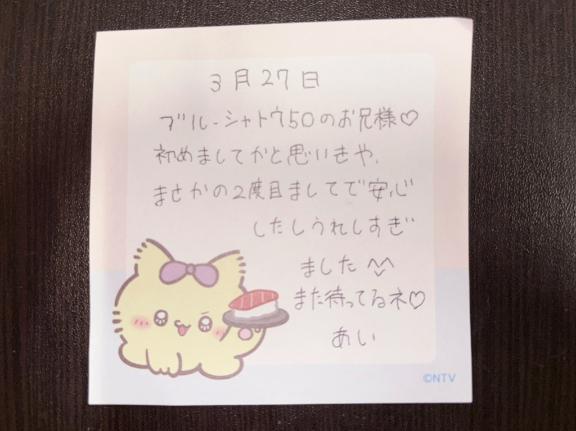 3月27日
ブルーシャトウ50のお兄様♡
初めましてかと思いきや、
まさかの2度目ましてで安心
したしうれしすぎ
ました^^
また待ってるネ♡
あい
©NTV